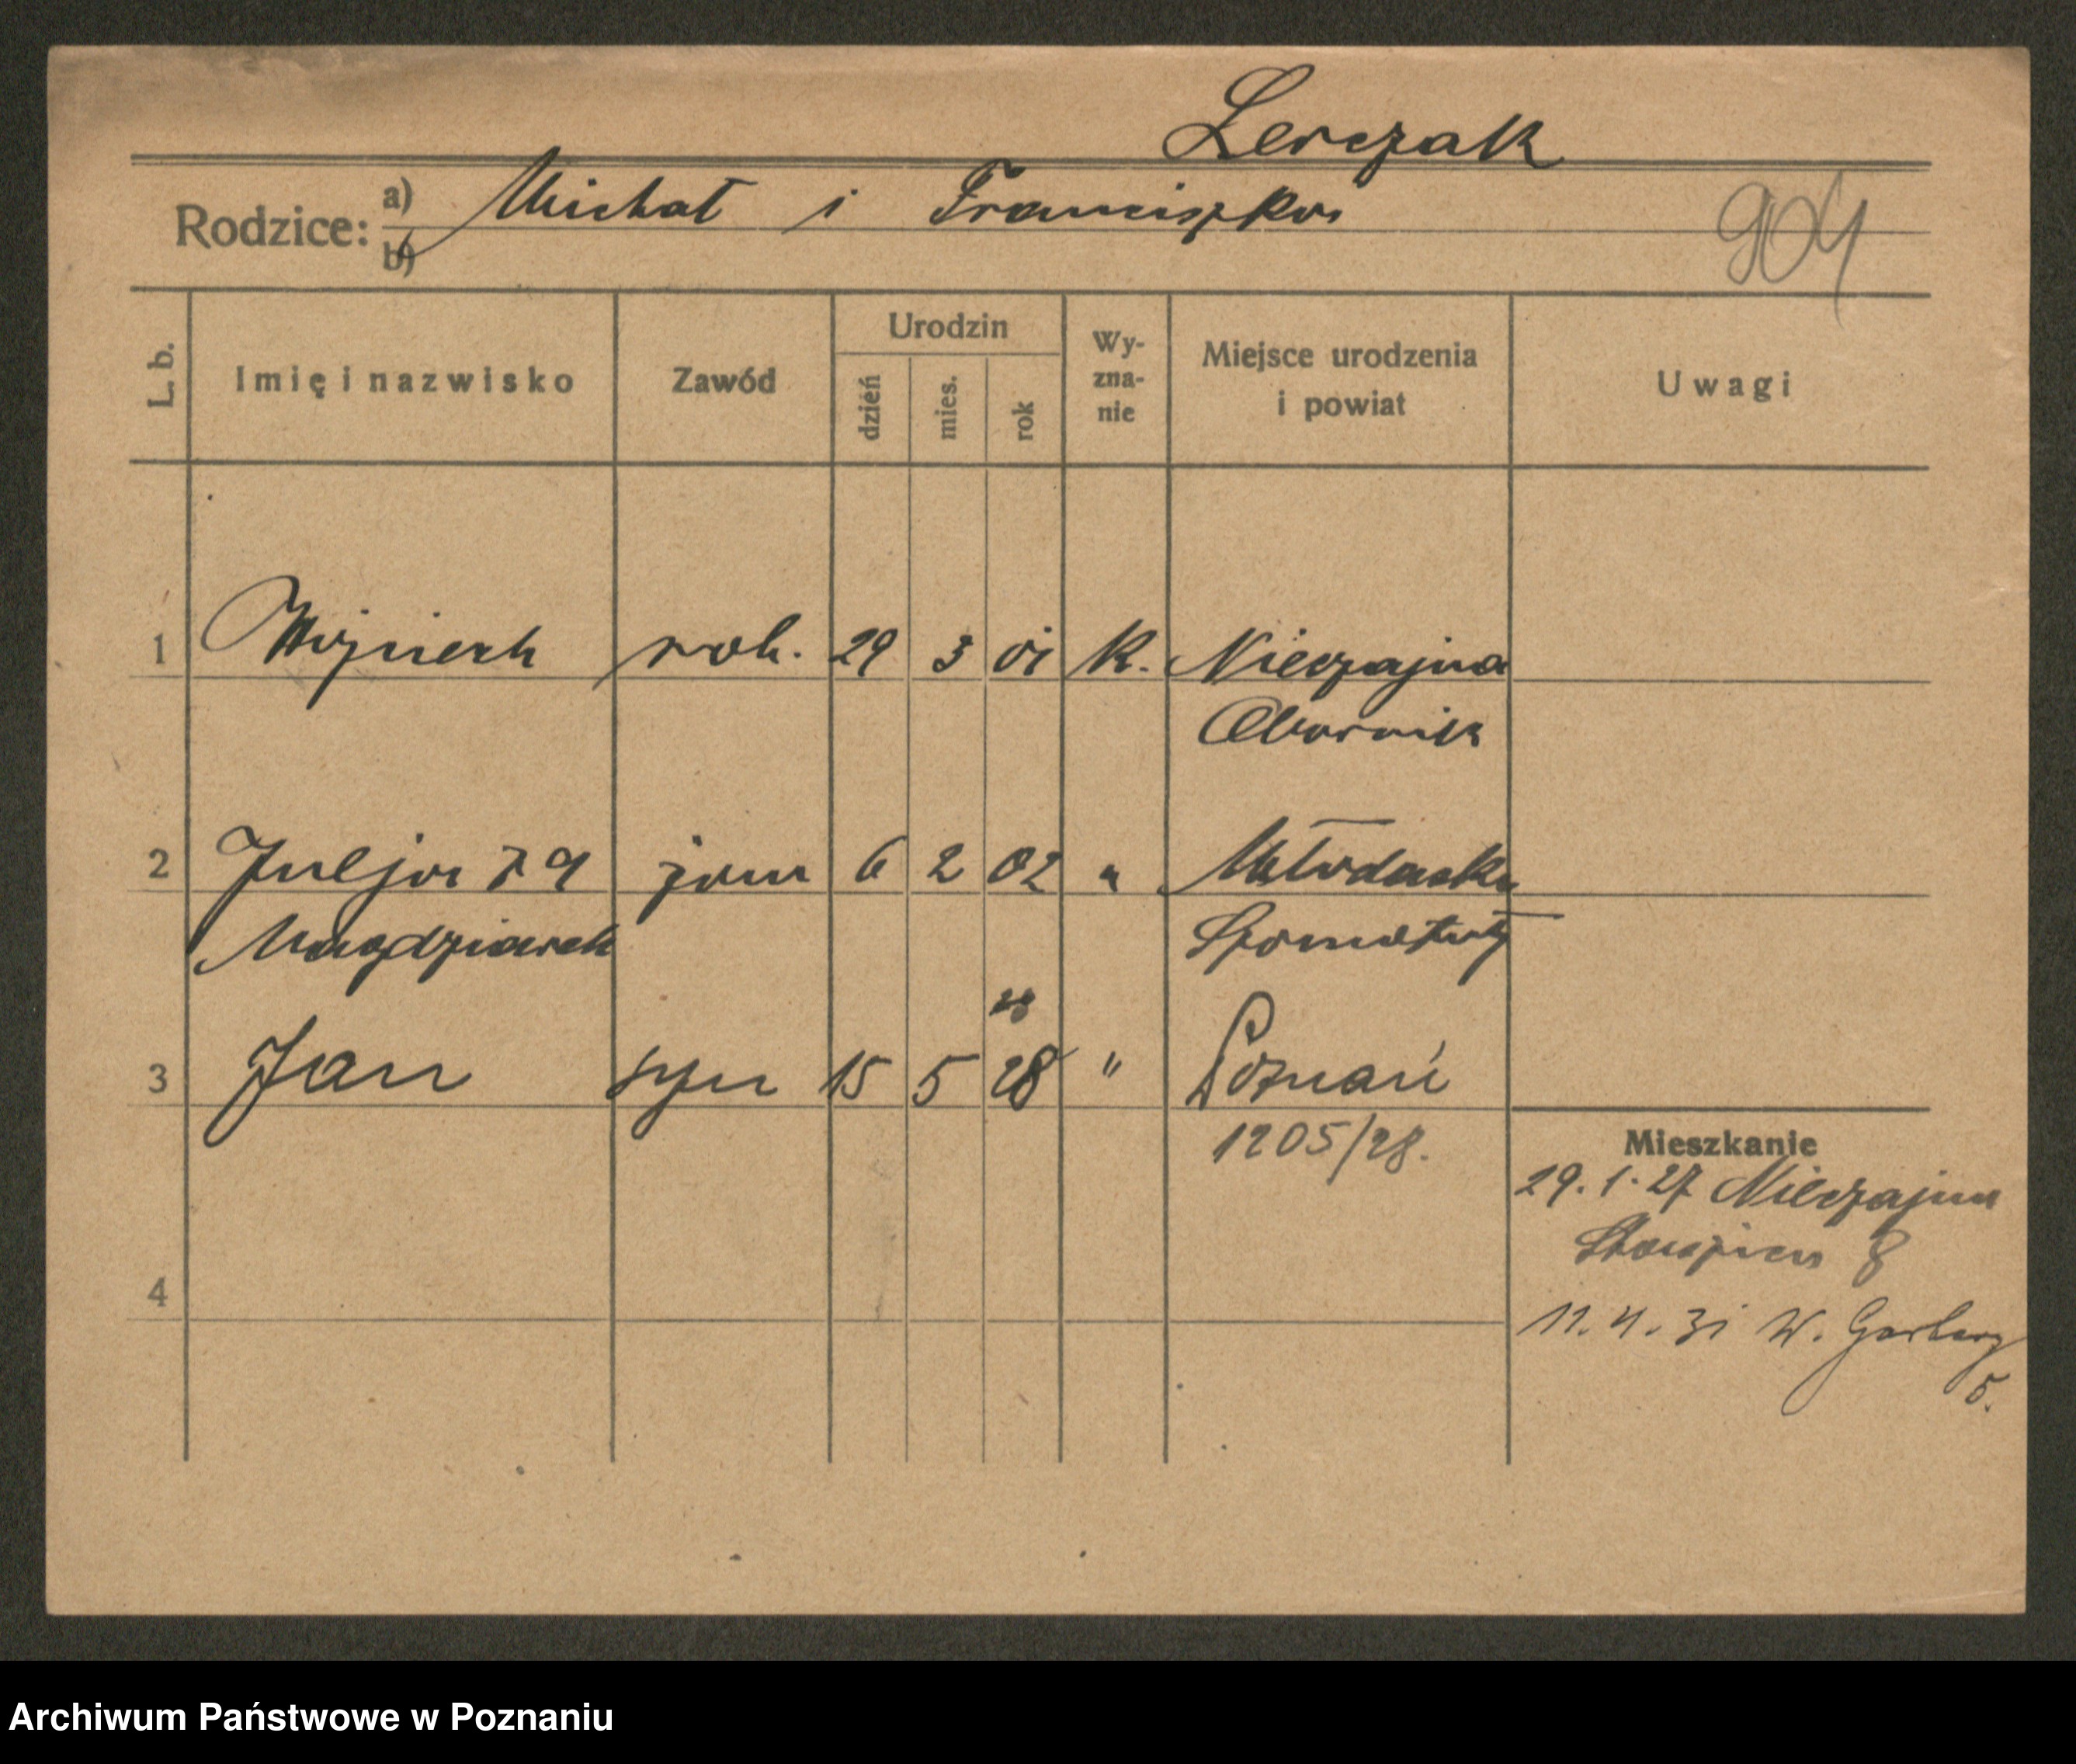 Lerczak
Rodzice: a) Michał i Franciszka
b)
904
L. b. Imię i nazwisko Zawód Urodzin dzień mies. rok Wy-zna-nie Miejsce urodzenia i powiat Uwagi
1 Wojciech rob. 29 3 01 K. Nieczajna
Obornik
2 Julja żona 6 2 02 "
Magdziarek Szamotuły
28
3 Jan syn 15 5 28 " Poznań
1205/28.
Mieszkanie
29.1.27 Nieczajna
8
4
11.4.31 W. Garbary
5.
Archiwum Państwowe w Poznaniu